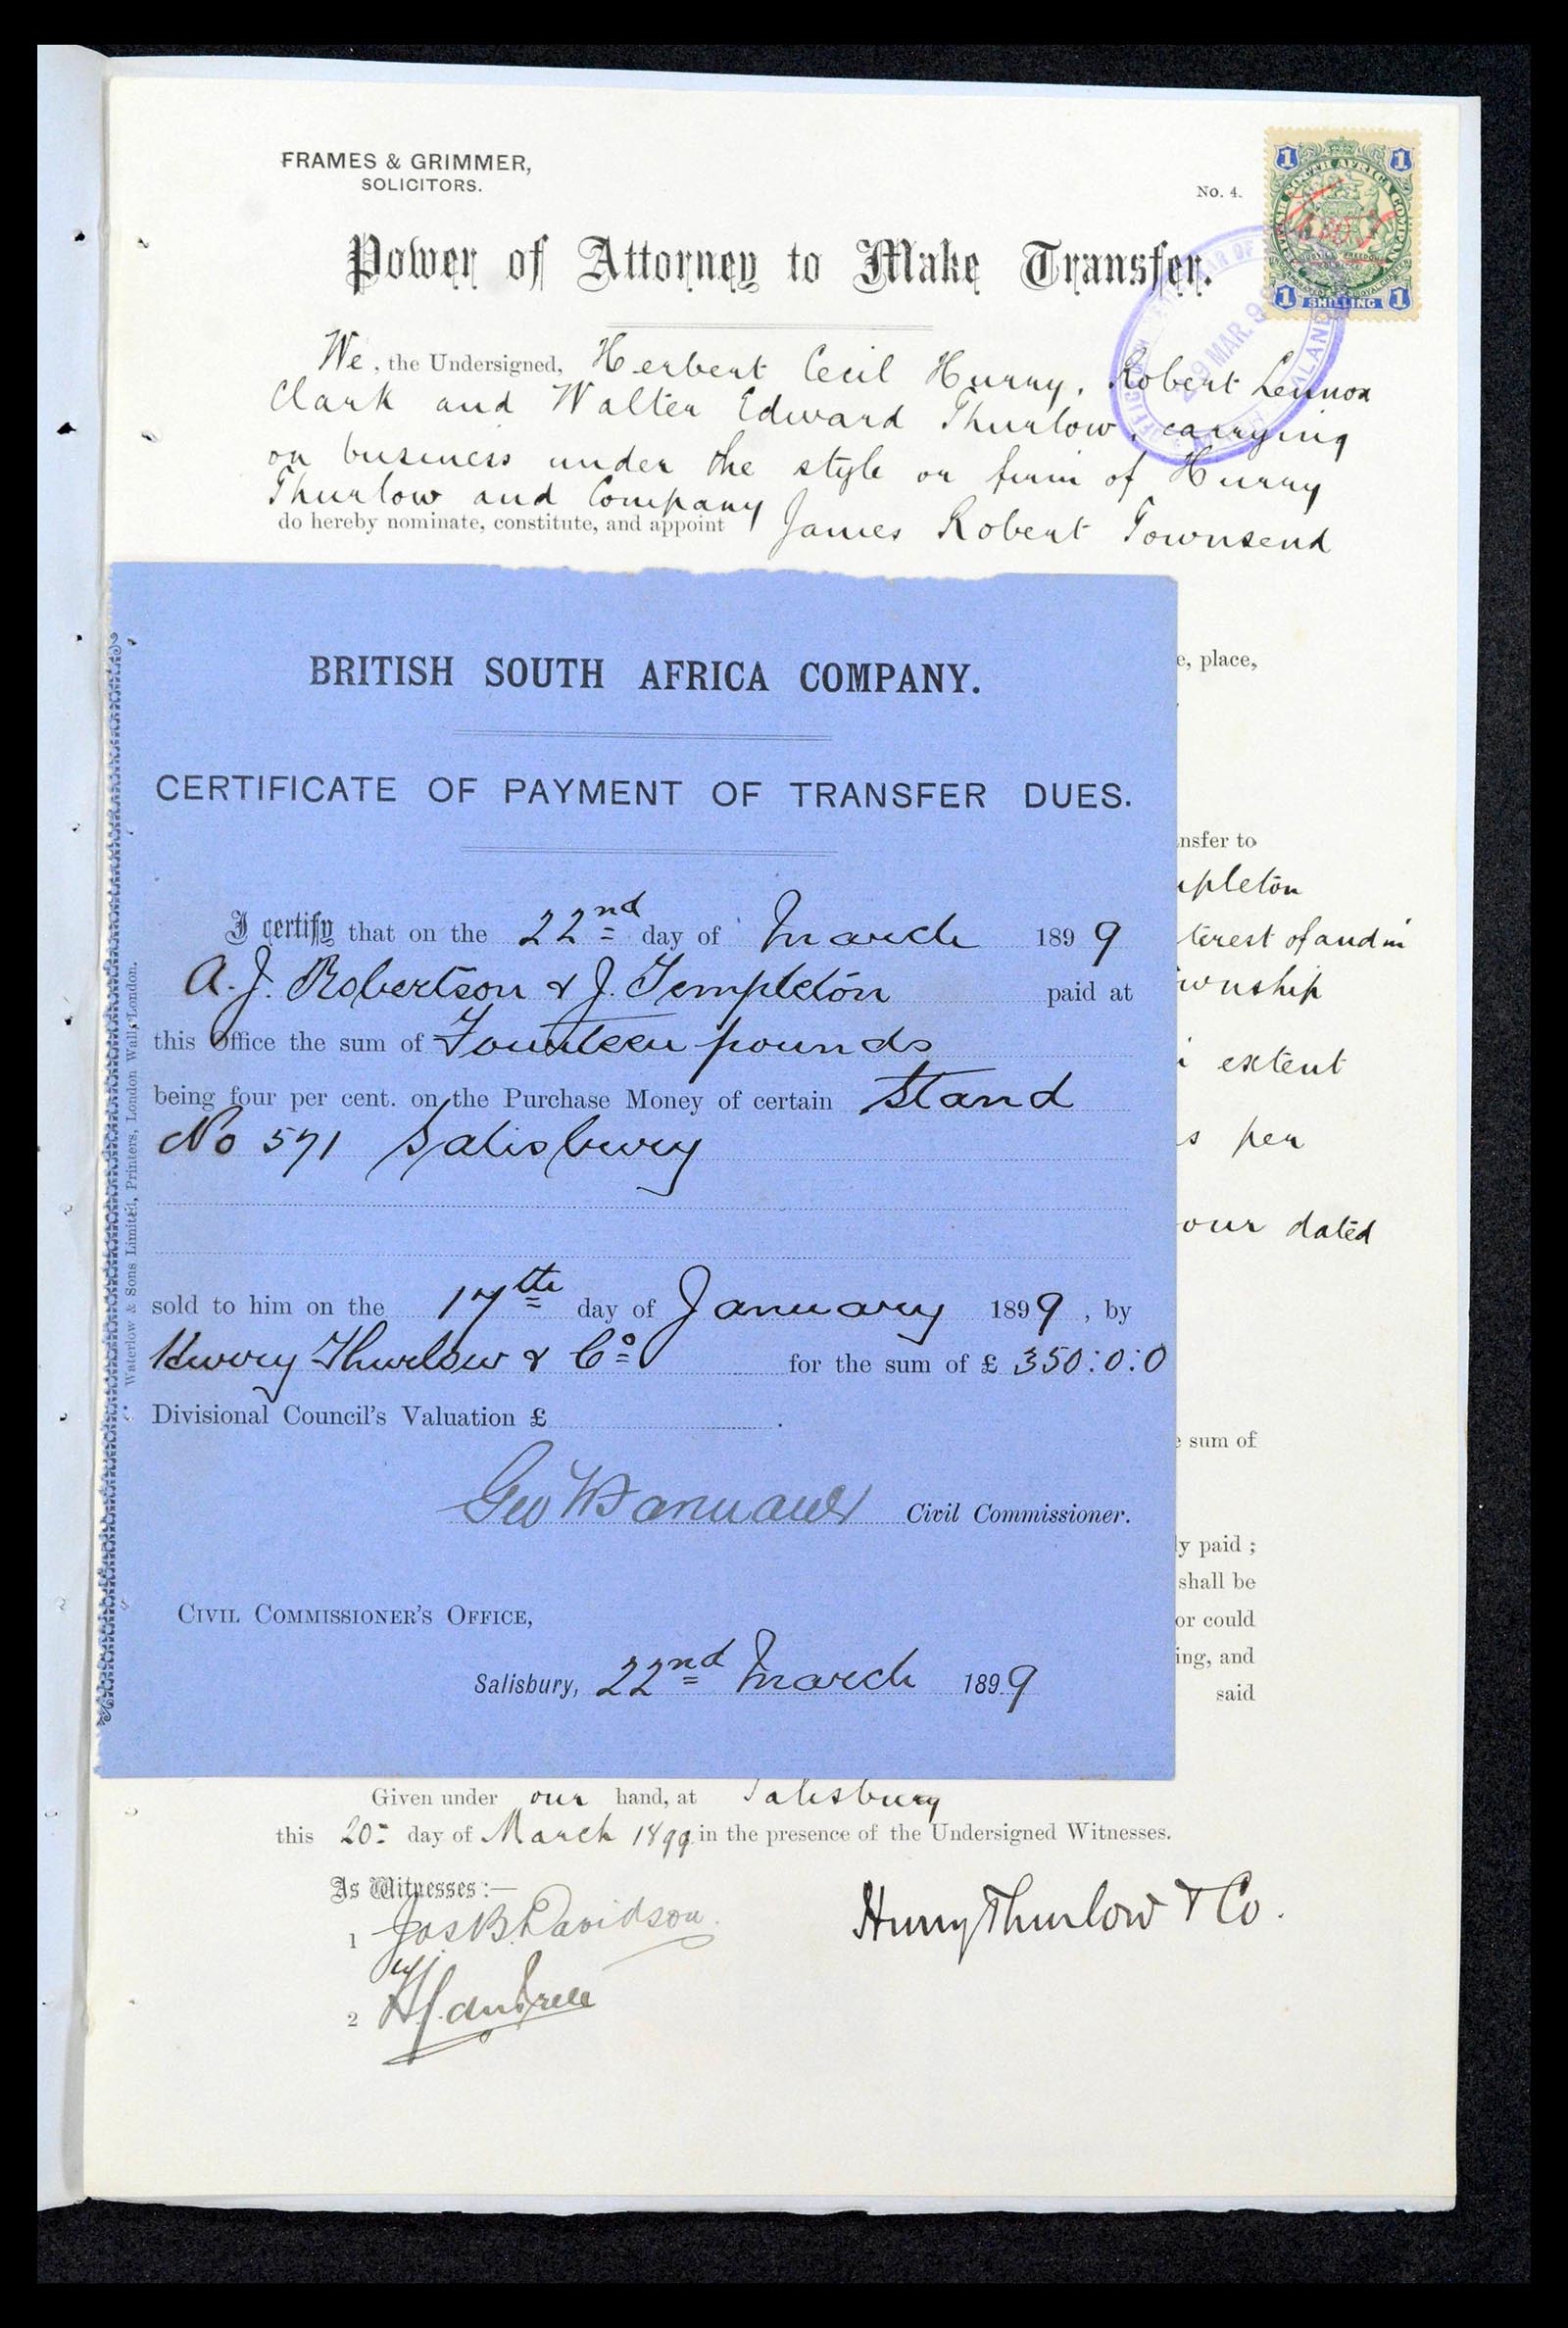 FRAMES & GRIMMER,
SOLICITORS.
No. 4.
1 1
BRITISH SOUTH AFRICA COMPANY
1 SHILLING 1
Power of Attorney to Make Transfer.
29 MAR. 9
We, the Undersigned, Herbert Cecil Hurry, Robert Lennox
Clark and Walter Edward Thurlow, carrying
on business under the style or firm of Hurry
Thurlow and Company
do hereby nominate, constitute, and appoint James Robert Townsend
e, place,
nsfer to
mpleton
terest of and in
wnship
extent
s per
our dated
e sum of
y paid ;
shall be
or could
ing, and
said
BRITISH SOUTH AFRICA COMPANY.
CERTIFICATE OF PAYMENT OF TRANSFER DUES.
I certify that on the 22nd day of March 1899
A. J. Robertson & J. Templeton paid at
this Office the sum of Fourteen pounds
being four per cent. on the Purchase Money of certain Stand
No 571 Salisbury
sold to him on the 17th day of January 1899, by
Hurry Thurlow & Co for the sum of £ 350:0:0
Divisional Council's Valuation £ .
Civil Commissioner.
CIVIL COMMISSIONER'S OFFICE,
Salisbury, 22nd March 1899
Waterlow & Sons Limited, Printers, London Wall, London.
Given under our hand, at Salisbury
this 20th day of March 1899 in the presence of the Undersigned Witnesses.
As Witnesses :—
1 Jas B. Davidson.
Hurry Thurlow & Co.
2